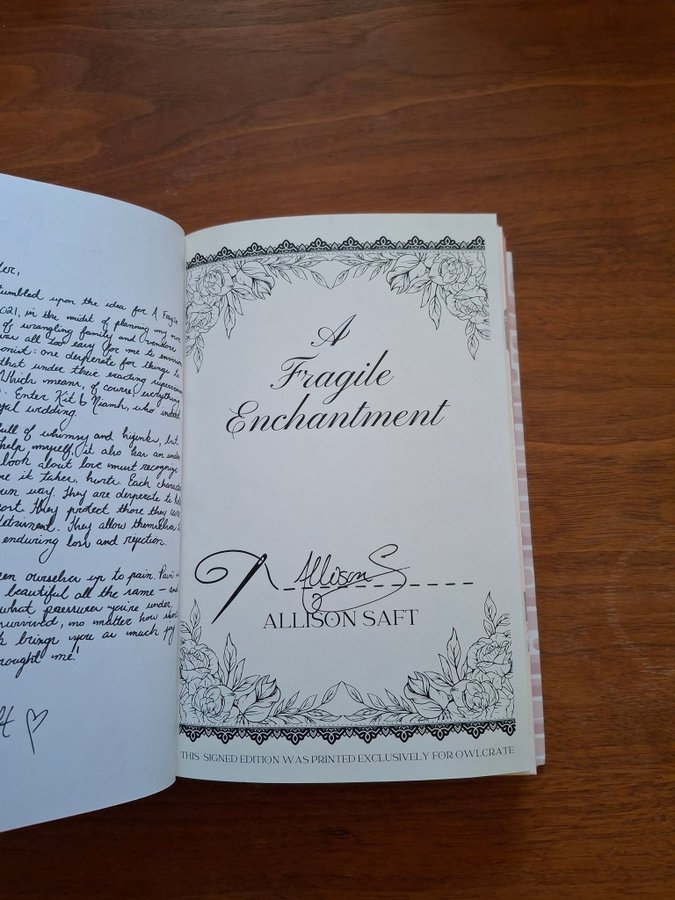 tumbled upon the idea for A Fragile
021, in the midst of planning my
of wrangling family and vendors
was all too easy for me to
onist: one desperate for things to
that under their exacting
Which means, of course, everything
Enter Kit & Niamh, who
yal wedding.
full of whimsy and hijinks, but
help myself, it also
book about love must recognize
me it takes, hurts. Each
own way. They are desperate to
They protect those they
detriment. They allow themselves
enduring loss and rejection.
ourselves up to pain. Pain
beautiful all the same — and
what pressures you're under,
survived, no matter how
k brings you as much joy
rought me!
A
Fragile
Enchantment
Allison S
ALLISON SAFT
THIS SIGNED EDITION WAS PRINTED EXCLUSIVELY FOR OWLCRATE